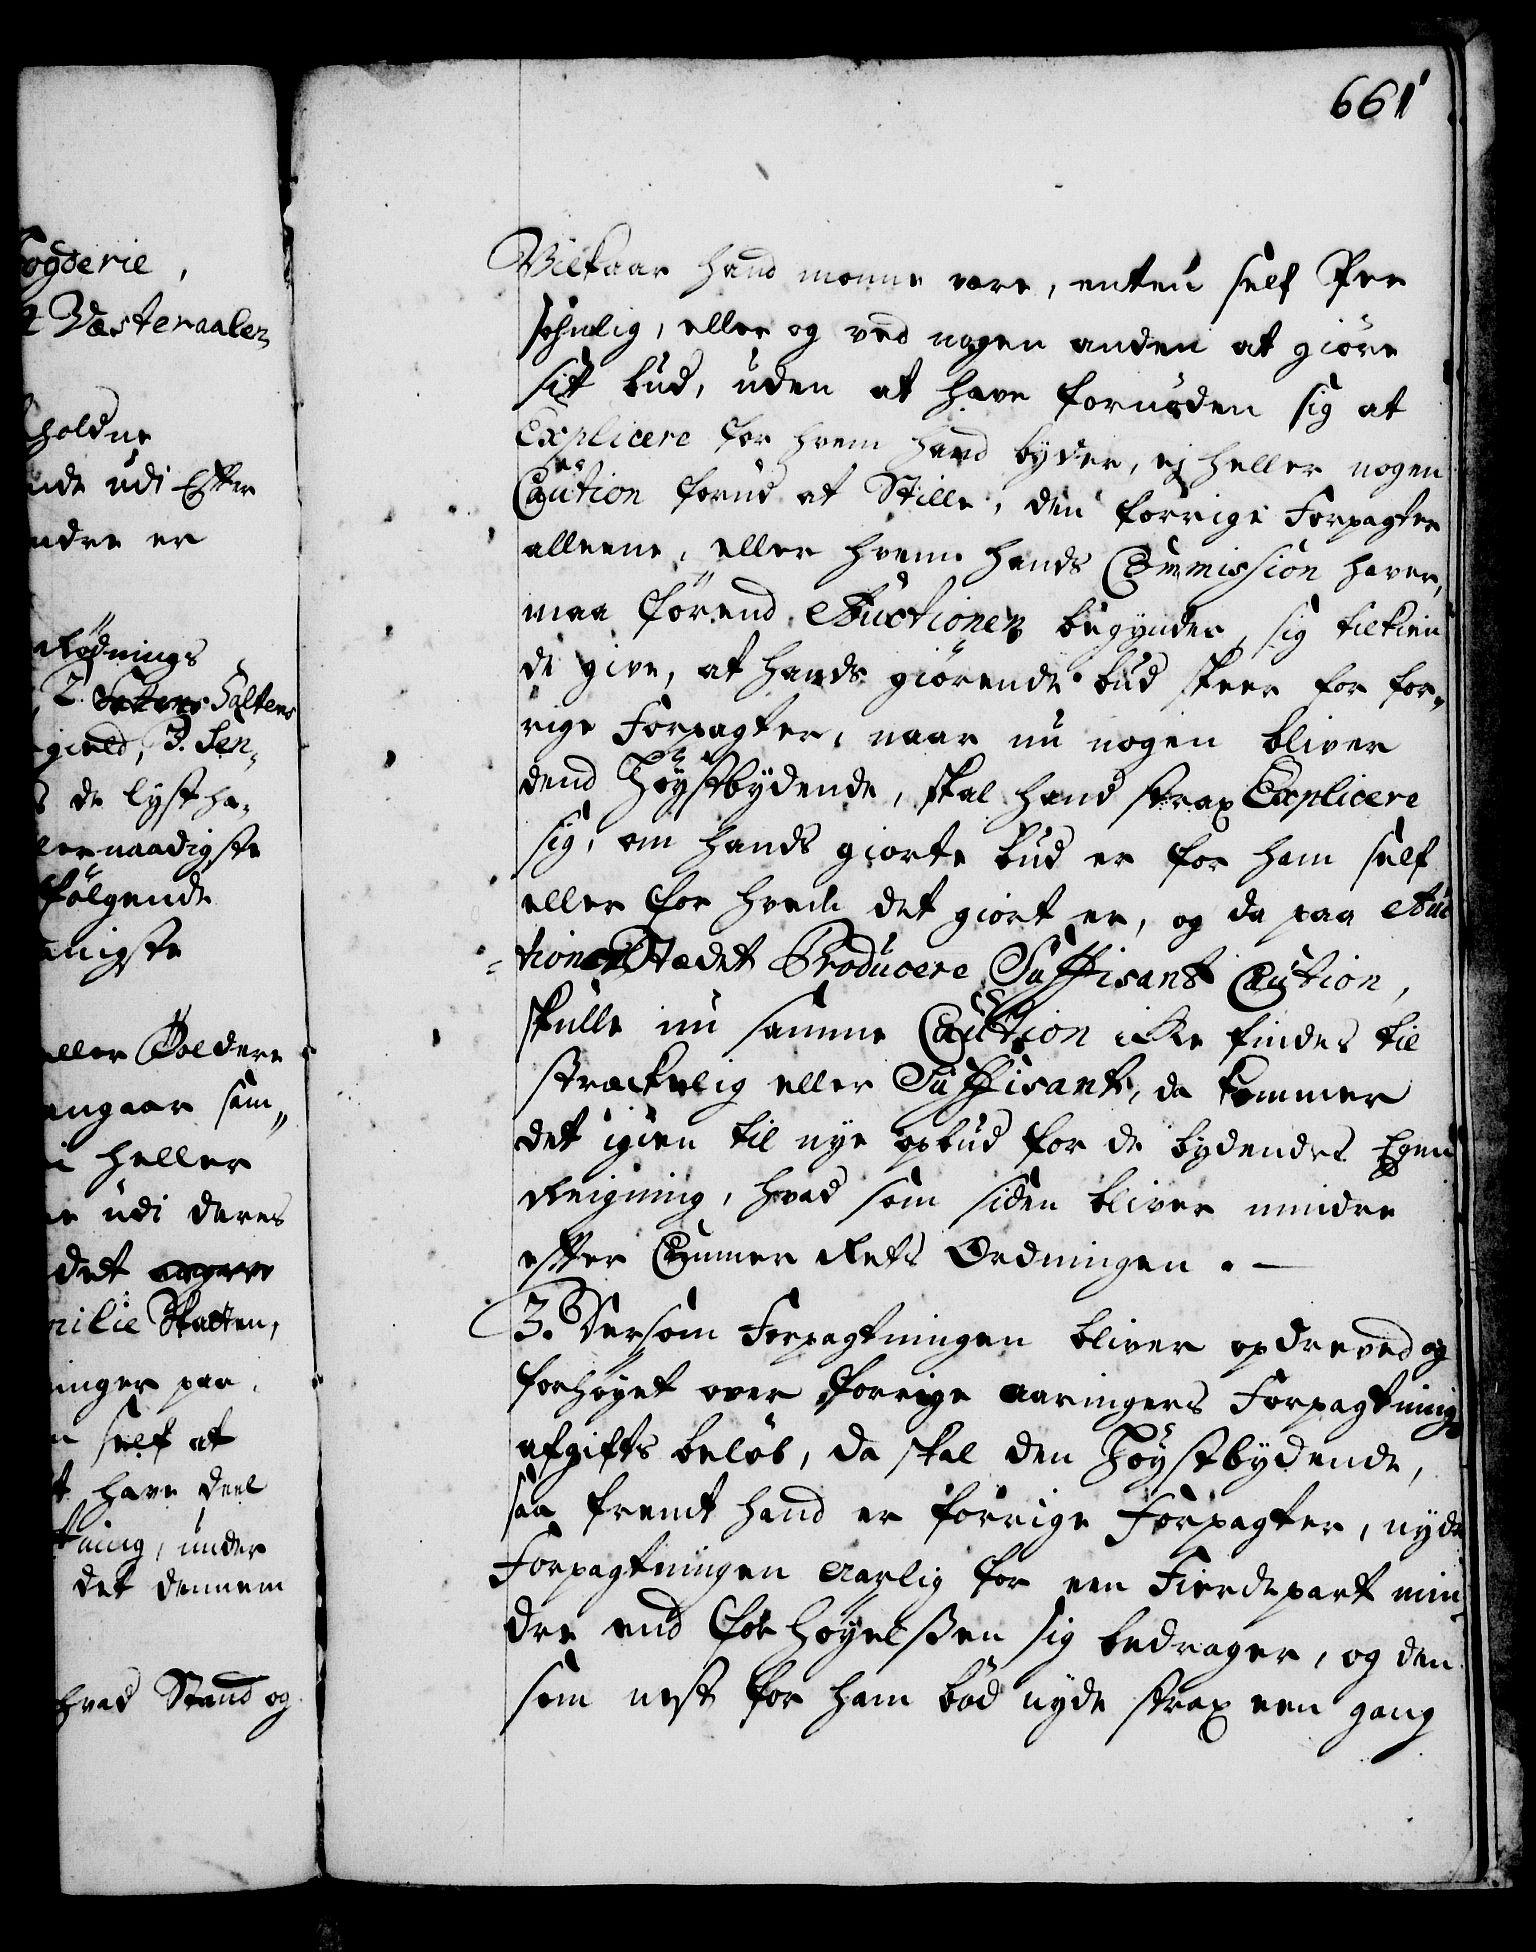 661
ogderie,
Vesteraalen
holdne
nde udi Effter
ndre er
Kiødnings
2. Saltens
gield, 3. Sen-
de lyst ha-
lernaadigste
følgende
anigste
eller Holdere
angaar sam-
i heller
e udi deres
det
milie Skatten,
inger paa
n self at
t have deel
tning, under
det dennem
hvad Stand og
Vilkaar hand monne vere, enten self Per
sohnlig, eller og ved nogen anden at giöre
sit bud, uden at have fornöden sig at
Explicere for hvem hand byder, ej heller nogen
Caution forud at Stille, den forrige Forpagter
alleene, eller hvem hands Commission haver,
maa förend Auctionen begynder, sig tilkien
de give, at hands giörende bud skeer for for-
rige Forpagter, naar nu nogen bliver
dend Höystbydende, skal hand strax Explicere
sig, om hands giorte bud er for ham self
eller for hvem det giort er, og da paa Auc
tions Stædet Producere Suffisant Caution,
skulle nu samme Caution icke findes til
streckelig eller Suffisant, da kommer
det igien til nye opbud for de bydendes Egen
Reigning, hvad som siden bliver mindre
effter Cammer Rets Ordningen. -
3. Dersom Forpagtningen bliver opdreved og
forhöyet over forrige aaringers Forpagtnings
afgifts belöb, da skal den Höystbydende,
saa fremt hand er forrige Forpagter, nyde
Forpagtningen aarlig for een Fierdepart min-
dre end forhöyelsßen sig bedrager, og den
som nest for ham böd nyde strax een gang